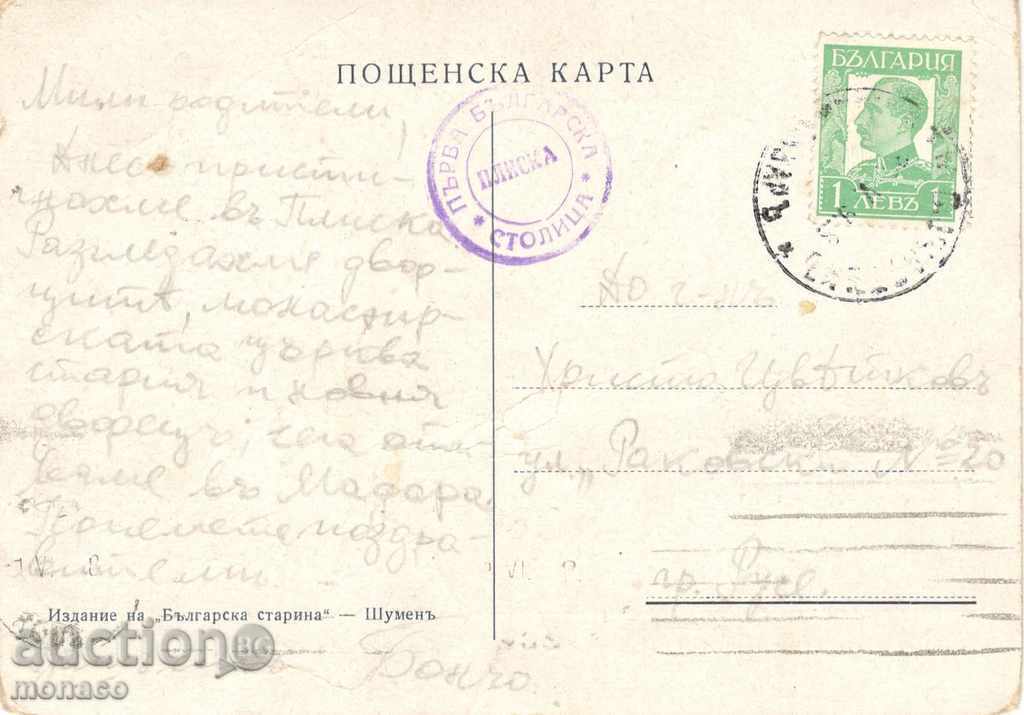 ПОЩЕНСКА КАРТА
БЪЛГАРИЯ
1 ЛЕВЪ 1
ПЪРВА БЪЛГАРСКА
ПЛИСКА
* СТОЛИЦА *
Мили родители,
Днесъ присти-
гнахме въ Плиска
Разгледахме двор-
цитѣ, монастир-
ската църква
стария и новия
дворецъ, сега оти-
ваме въ Мадара.
поздра-
Бончо
До г-нъ
Христо Цвѣтковъ
ул. „Раковски“ № 20
гр. Русе.
Издание на „Българска старина“ — Шуменъ
auction BG
monaco